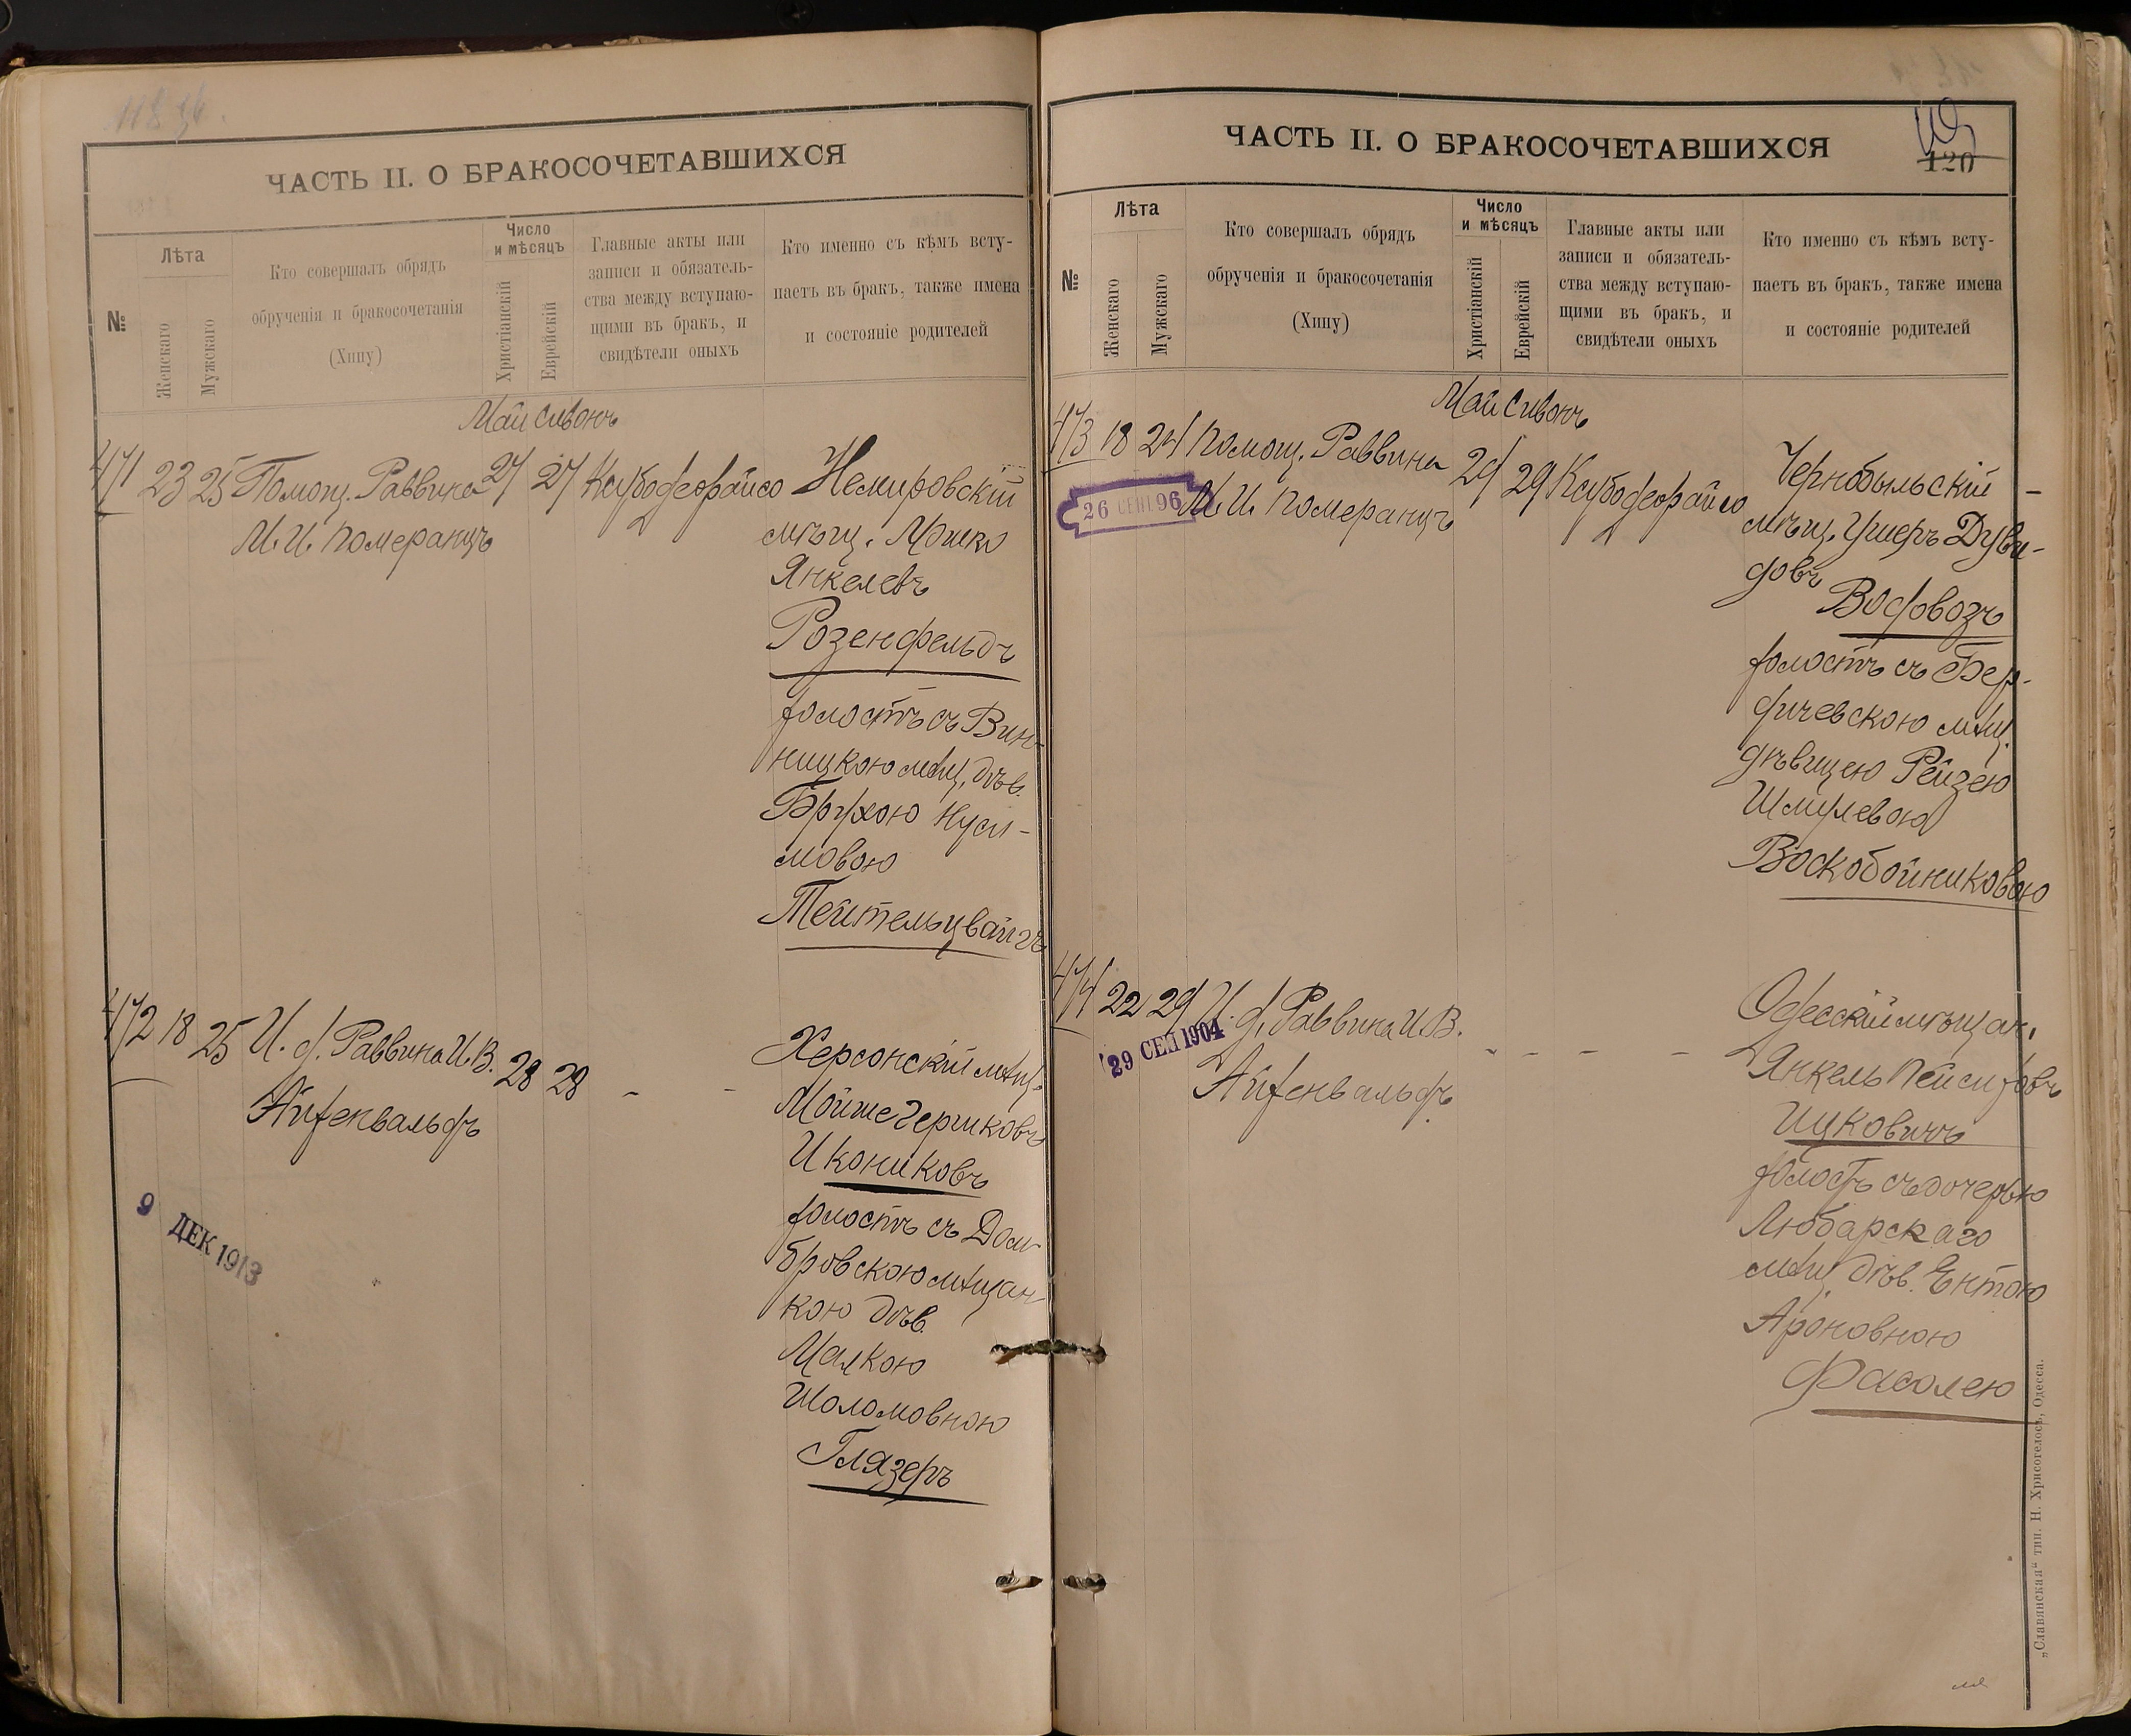 ЧАСТЬ II. О БРАКОСОЧЕТАВШИХСЯ
№
Лѣта
Женскаго
Мужскаго
Кто совершалъ обрядъ
обрученія и бракосочетанія
(Хипу)
Число
и мѣсяцъ
Христіанскій
Еврейскій
Главные акты или
записи и обязатель-
ства между вступаю-
щими въ бракъ, и
свидѣтели оныхъ
Кто именно съ кѣмъ всту-
паетъ въ бракъ, также имена
и состояніе родителей
Май Сивонъ
471 23 25 Помощ. Раввина 27 27 Ксубодеорайсо
М. И. Померанцъ
Немировскій
мѣщ.
Янкелевъ
Розенфельдъ
холостъ съ Вин-
ницкою мѣщ. дѣв.
Брухою Нуси-
мовою
Тейтельцвайгъ
472 18 25 И. д. Раввина И. В. 28 28 - -
Айзенвальдъ
9 ДЕК 1913
Херсонскій мѣщ.
Мойше Гершковъ
Икониковъ
холостъ съ Дом-
бровскою мѣщан-
кою дѣв.
Малкою
Шоломовною
Глязеръ
ЧАСТЬ II. О БРАКОСОЧЕТАВШИХСЯ
120
№
Лѣта
Женскаго
Мужскаго
Кто совершалъ обрядъ
обрученія и бракосочетанія
(Хипу)
Число
и мѣсяцъ
Христіанскій
Еврейскій
Главные акты или
записи и обязатель-
ства между вступаю-
щими въ бракъ, и
свидѣтели оныхъ
Кто именно съ кѣмъ всту-
паетъ въ бракъ, также имена
и состояніе родителей
Май Сивонъ
473 18 24 Помощ. Раввина 29 29 Ксубодеорайсо
М. И. Померанцъ
26 СЕНТ. 96
Чернобыльскій
мѣщ. Ушеръ Дуви-
довъ
Водовозъ
холостъ съ Бер-
дичевскою мѣщ.
дѣвицею Рейзею
Шмулевою
Воскобойниковою
474 22 29 И. д. Раввина И. В. - - - -
Айзенвальдъ.
29 СЕП 1904
Одесскій мѣщан.
Янкель Пейсиховъ
Ицковичъ
холостъ съ дочерью
Любарскаго
мѣщ. дѣв. Ентою
Ароновною
Фасолею
„Славянская“ тип. Н. Хрисогелосъ, Одесса.